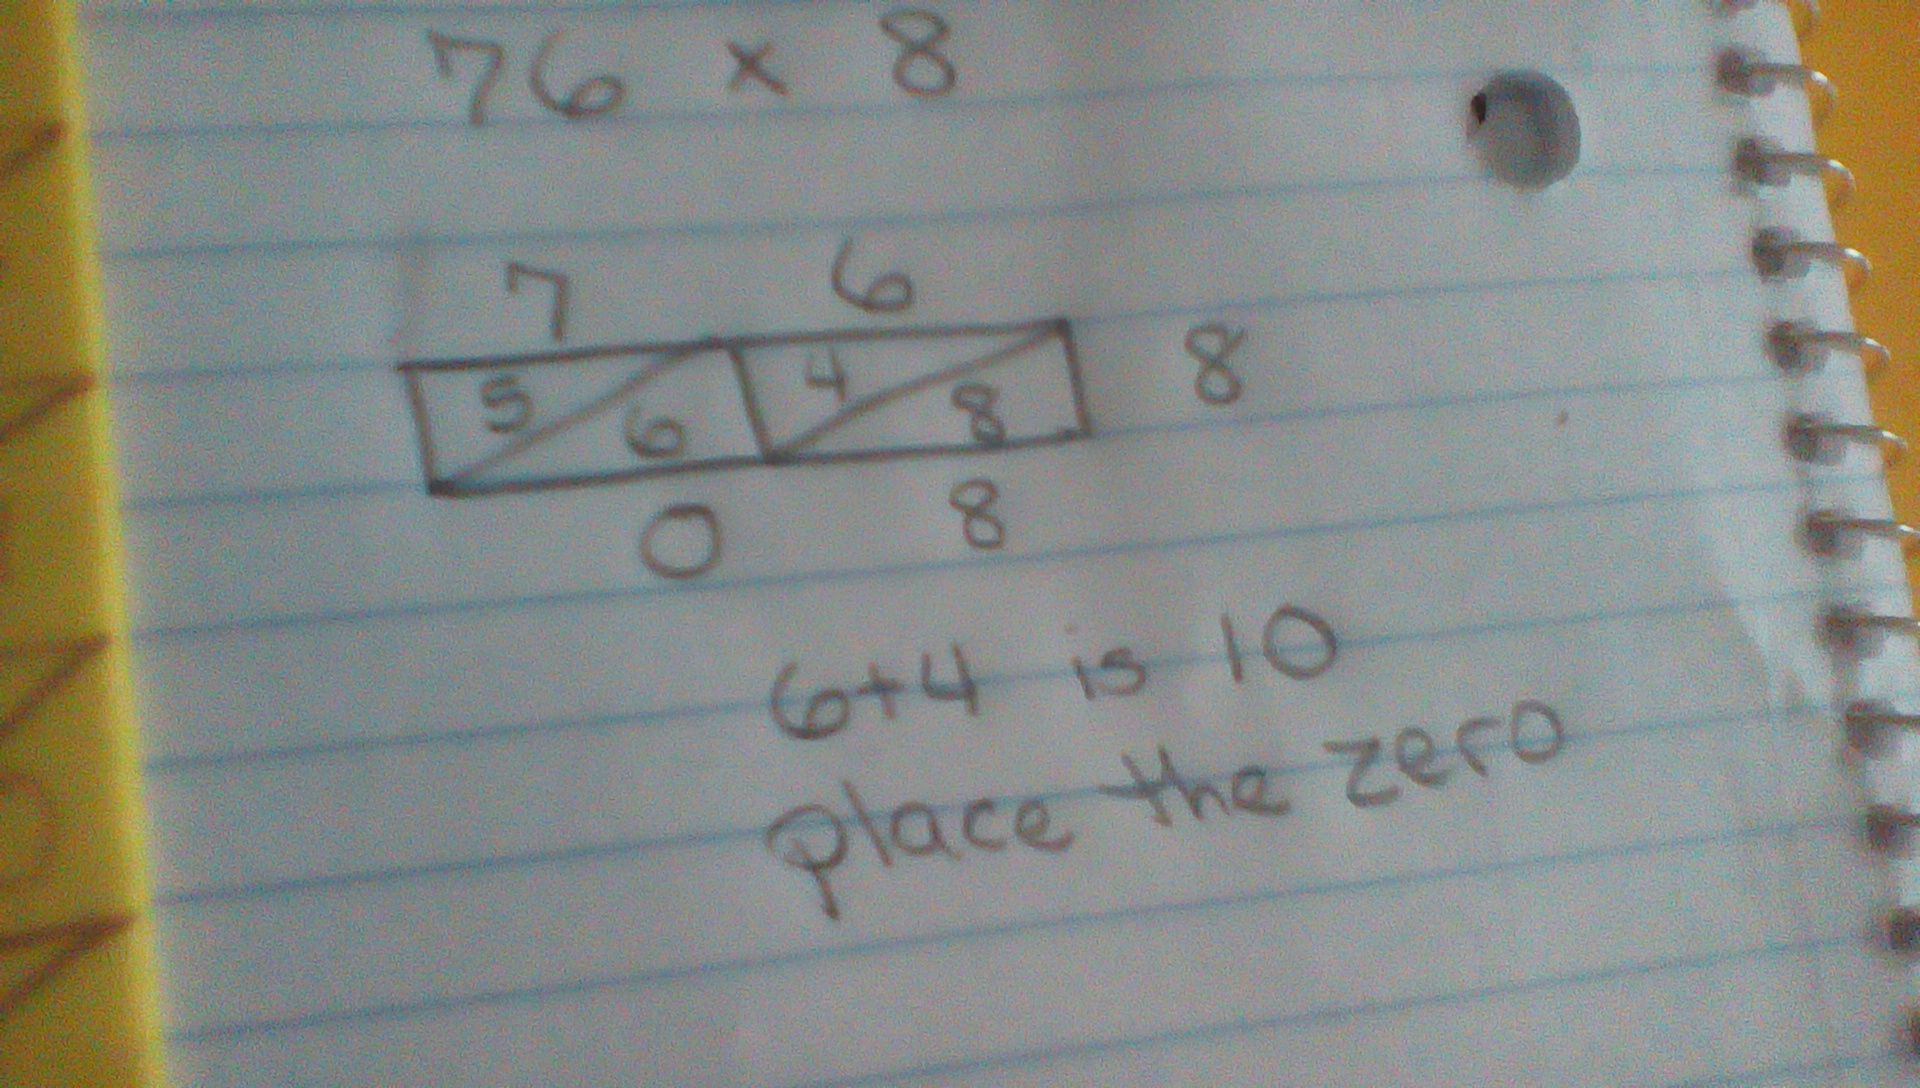 76 x 8
7 6
5 6 4 8 8
0 8
6+4 is 10
place the zero